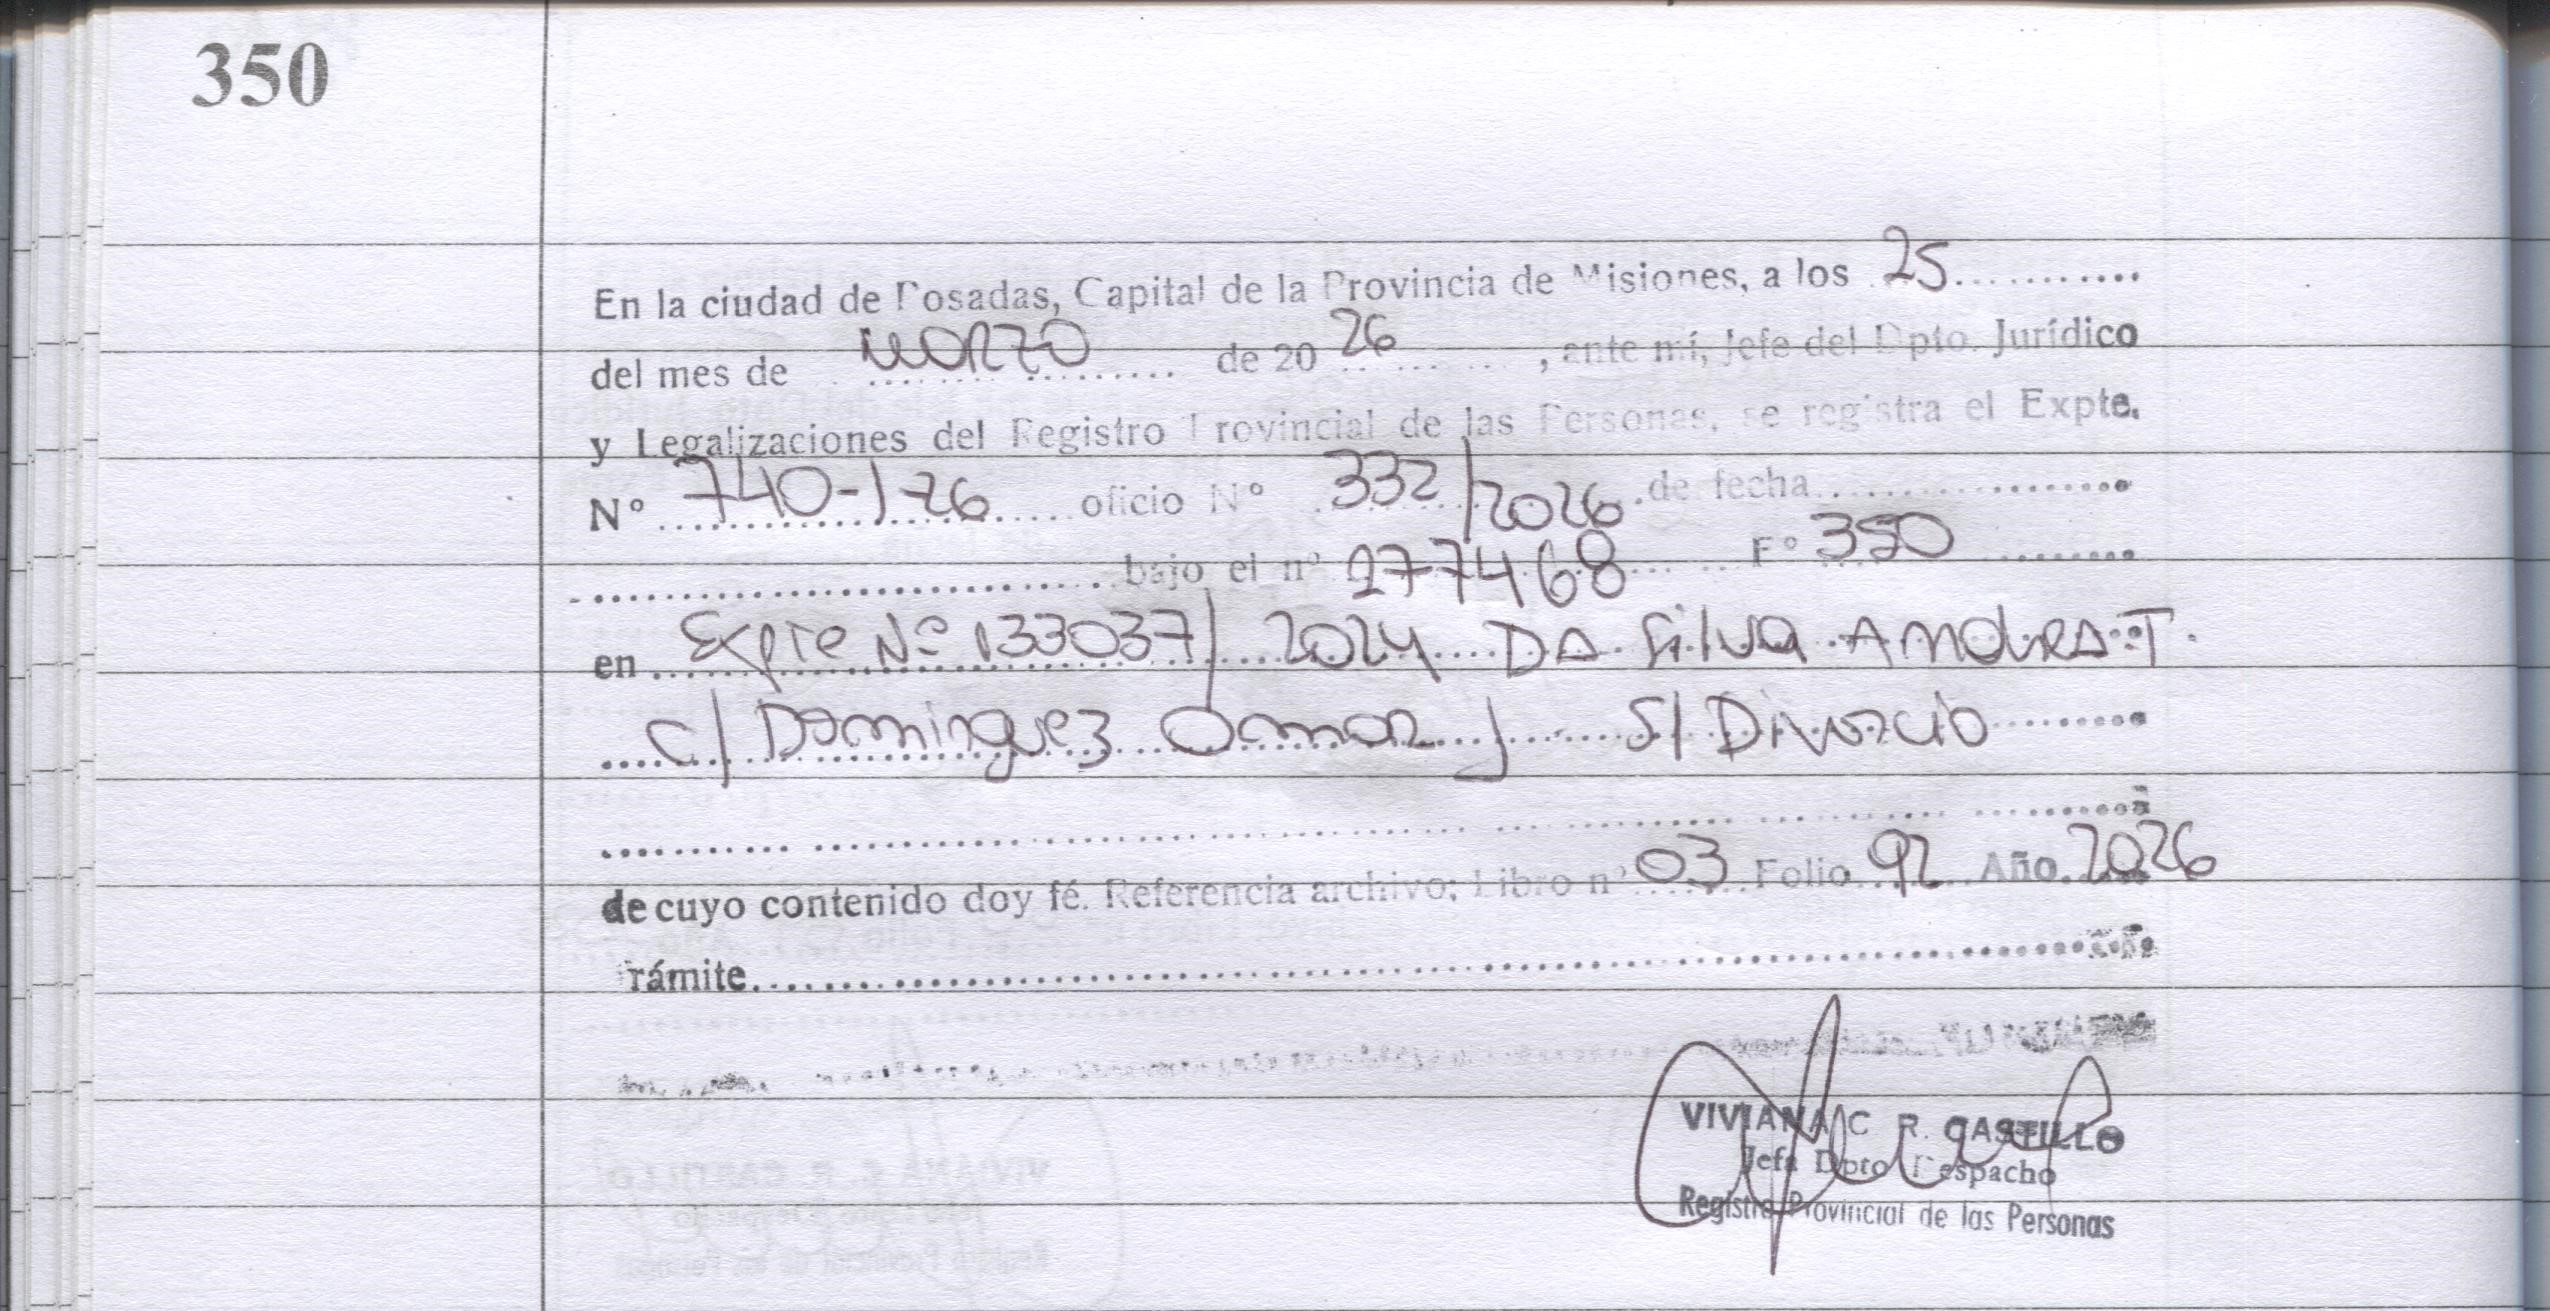 350
En la ciudad de Posadas, Capital de la Provincia de Misiones, a los 25
del mes de marzo de 20 26, ante mí, Jefe del Dpto. Jurídico
y Legalizaciones del Registro Provincial de las Personas, se registra el Expte.
Nº 740-/26 oficio Nº 332/2026 de fecha
bajo el nº 277468 Fº 350
en Expte Nº 133037/2024 DA Silva Andrea T.
c/ Dominguez Omar J S/ Divorcio
de cuyo contenido doy fé. Referencia archivo: Libro nº 03 Folio 92 Año 2026
rámite
VIVIANA C. R. CASTILLO
Jefa Dpto Despacho
Registro Provincial de las Personas